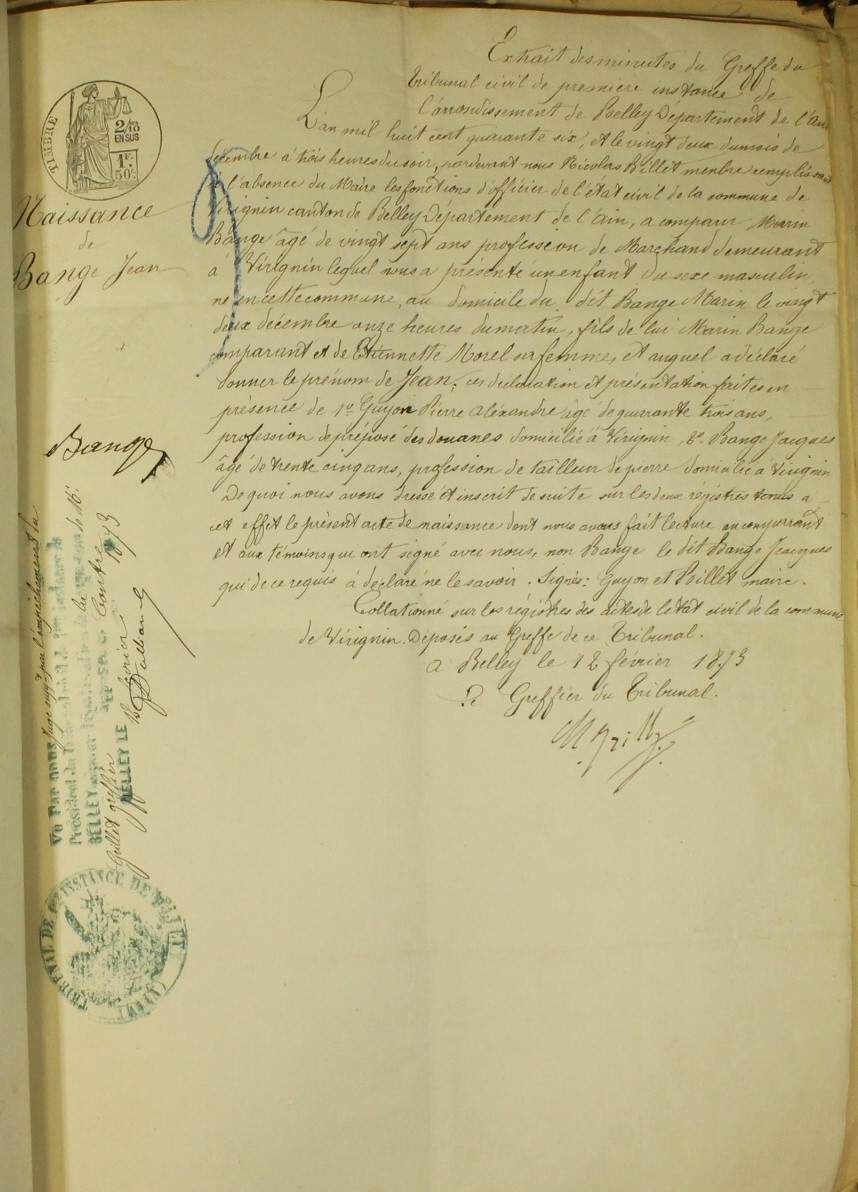 TIMBRE
2/10
EN SUS
1F.
50c.
Naissance
de
Bange Jean
Extrait des minutes du Greffe du
Tribunal civil de première instance de
l'arrondissement de Belley Département de l'Ain
L'an mil huit cent quarante six, et le vingt deux du mois de
décembre à trois heures du soir, pardevant nous Nicolas Billet membre remplissant
à l'absence du Maire les fonctions d'officier de l'état civil de la commune de
Virignin canton de Belley Département de l'Ain, a comparu Marin
Bange âgé de vingt sept ans profession de Marchand demeurant
à Virignin lequel nous a présenté un enfant du sexe masculin,
né en cette commune, au domicile du dit Bange Marin le vingt
deux décembre onze heures du matin, fils de lui Marin Bange
comparant et de Etiennette Morel sa femme, et auquel a déclaré
donner le prénom de Jean, ces déclaration et présentation faites en
présence de 1º Guyon Pierre Alexandre âgé de quarante trois ans,
profession de préposé des douanes domicilié à Virignin, 2º Bange Jacques
âgé de trente cinq ans, profession de tailleur de pierre domicilié à Virignin
De quoi nous avons dressé et inscrit de suite sur les deux régistres tenus à
cet effet le présent acte de naissance dont nous avons fait lecture au comparrant
et aux témoins qui ont signé avec nous, non Bange le dit Bange Jacques
qui de ce requis à déclaré ne le savoir. Signés: Guyon et Billet maire.
Collationné sur les régistres des actes de l'état civil de la commune
de Virignin. Déposés au Greffe de ce Tribunal.
a Belley le 12 février 1873
Le Greffier du Tribunal.
Bange
Vu par nous juge supp. par l'empêchement du
Président du
BELLEY
BELLEY LE 13 février 1873
TRIBUNAL DE 1re INSTANCE DE BELLEY
(AIN)